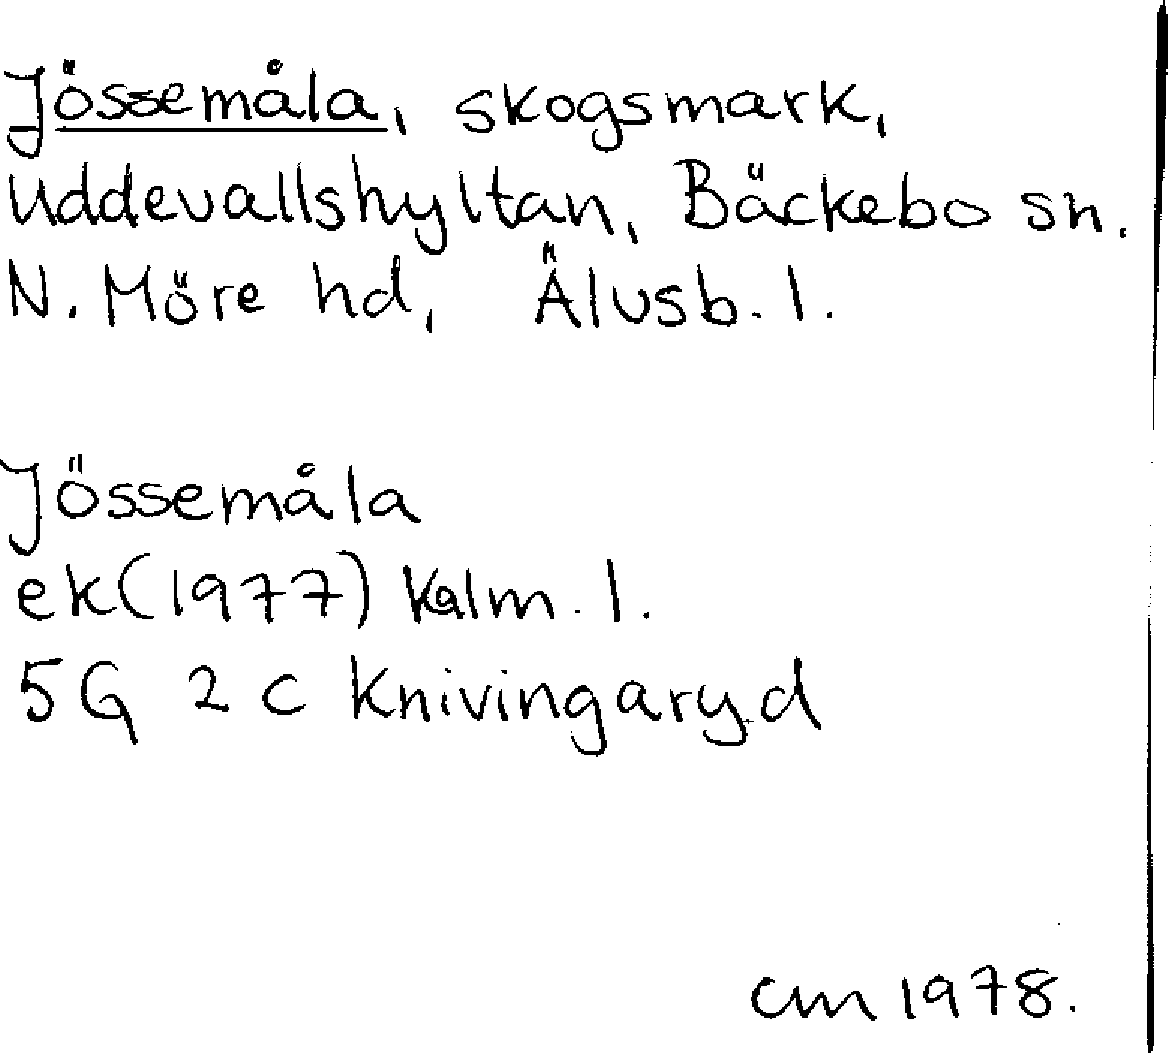 Jössemåla, skogsmark,
Uddevallshyltan, Bäckebo sn.
N. Möre hd, Älvsb. l.
Jössemåla
ek (1977) Kalm. l.
5G 2 c Knivingaryd
cm 1978.